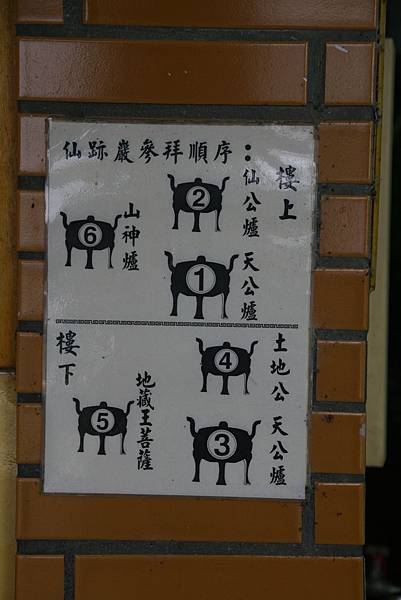 仙跡巖參拜順序：
樓上
仙公爐
2
天公爐
1
山神爐
6
樓下
土地公
4
天公爐
3
地藏王菩薩
5